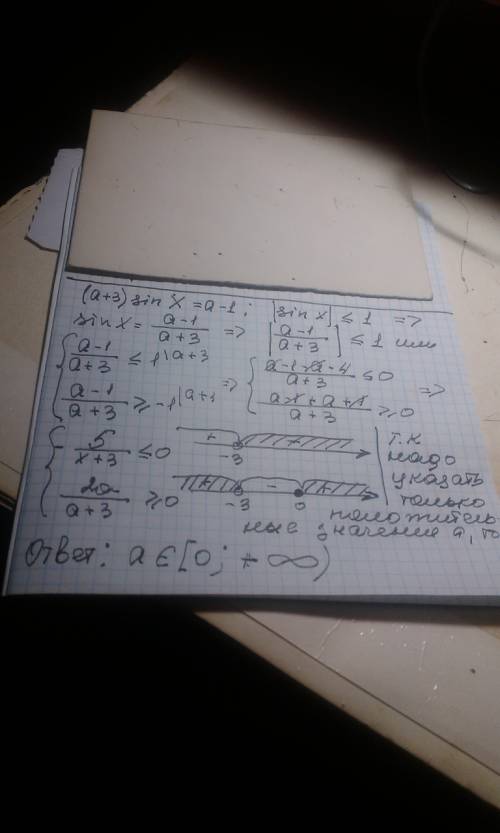 (a+3) sin X = a-1; |sin x| ≤ 1 =>
sin X = a-1/a+3 => |a-1/a+3| ≤ 1 или
{ a-1/a+3 ≤ 1 | a+3
a-1/a+3 ≥ -1 | a+3 => { a-1-a-4/a+3 ≤ 0
a-1+a+1/a+3 ≥ 0 =>
{ -5/x+3 ≤ 0 + -3 +
2a/a+3 ≥ 0 + -3 - 0 +
т.к
надо
указать
только
положитель
ные значение a, то
Ответ: a ∈ [0; +∞)